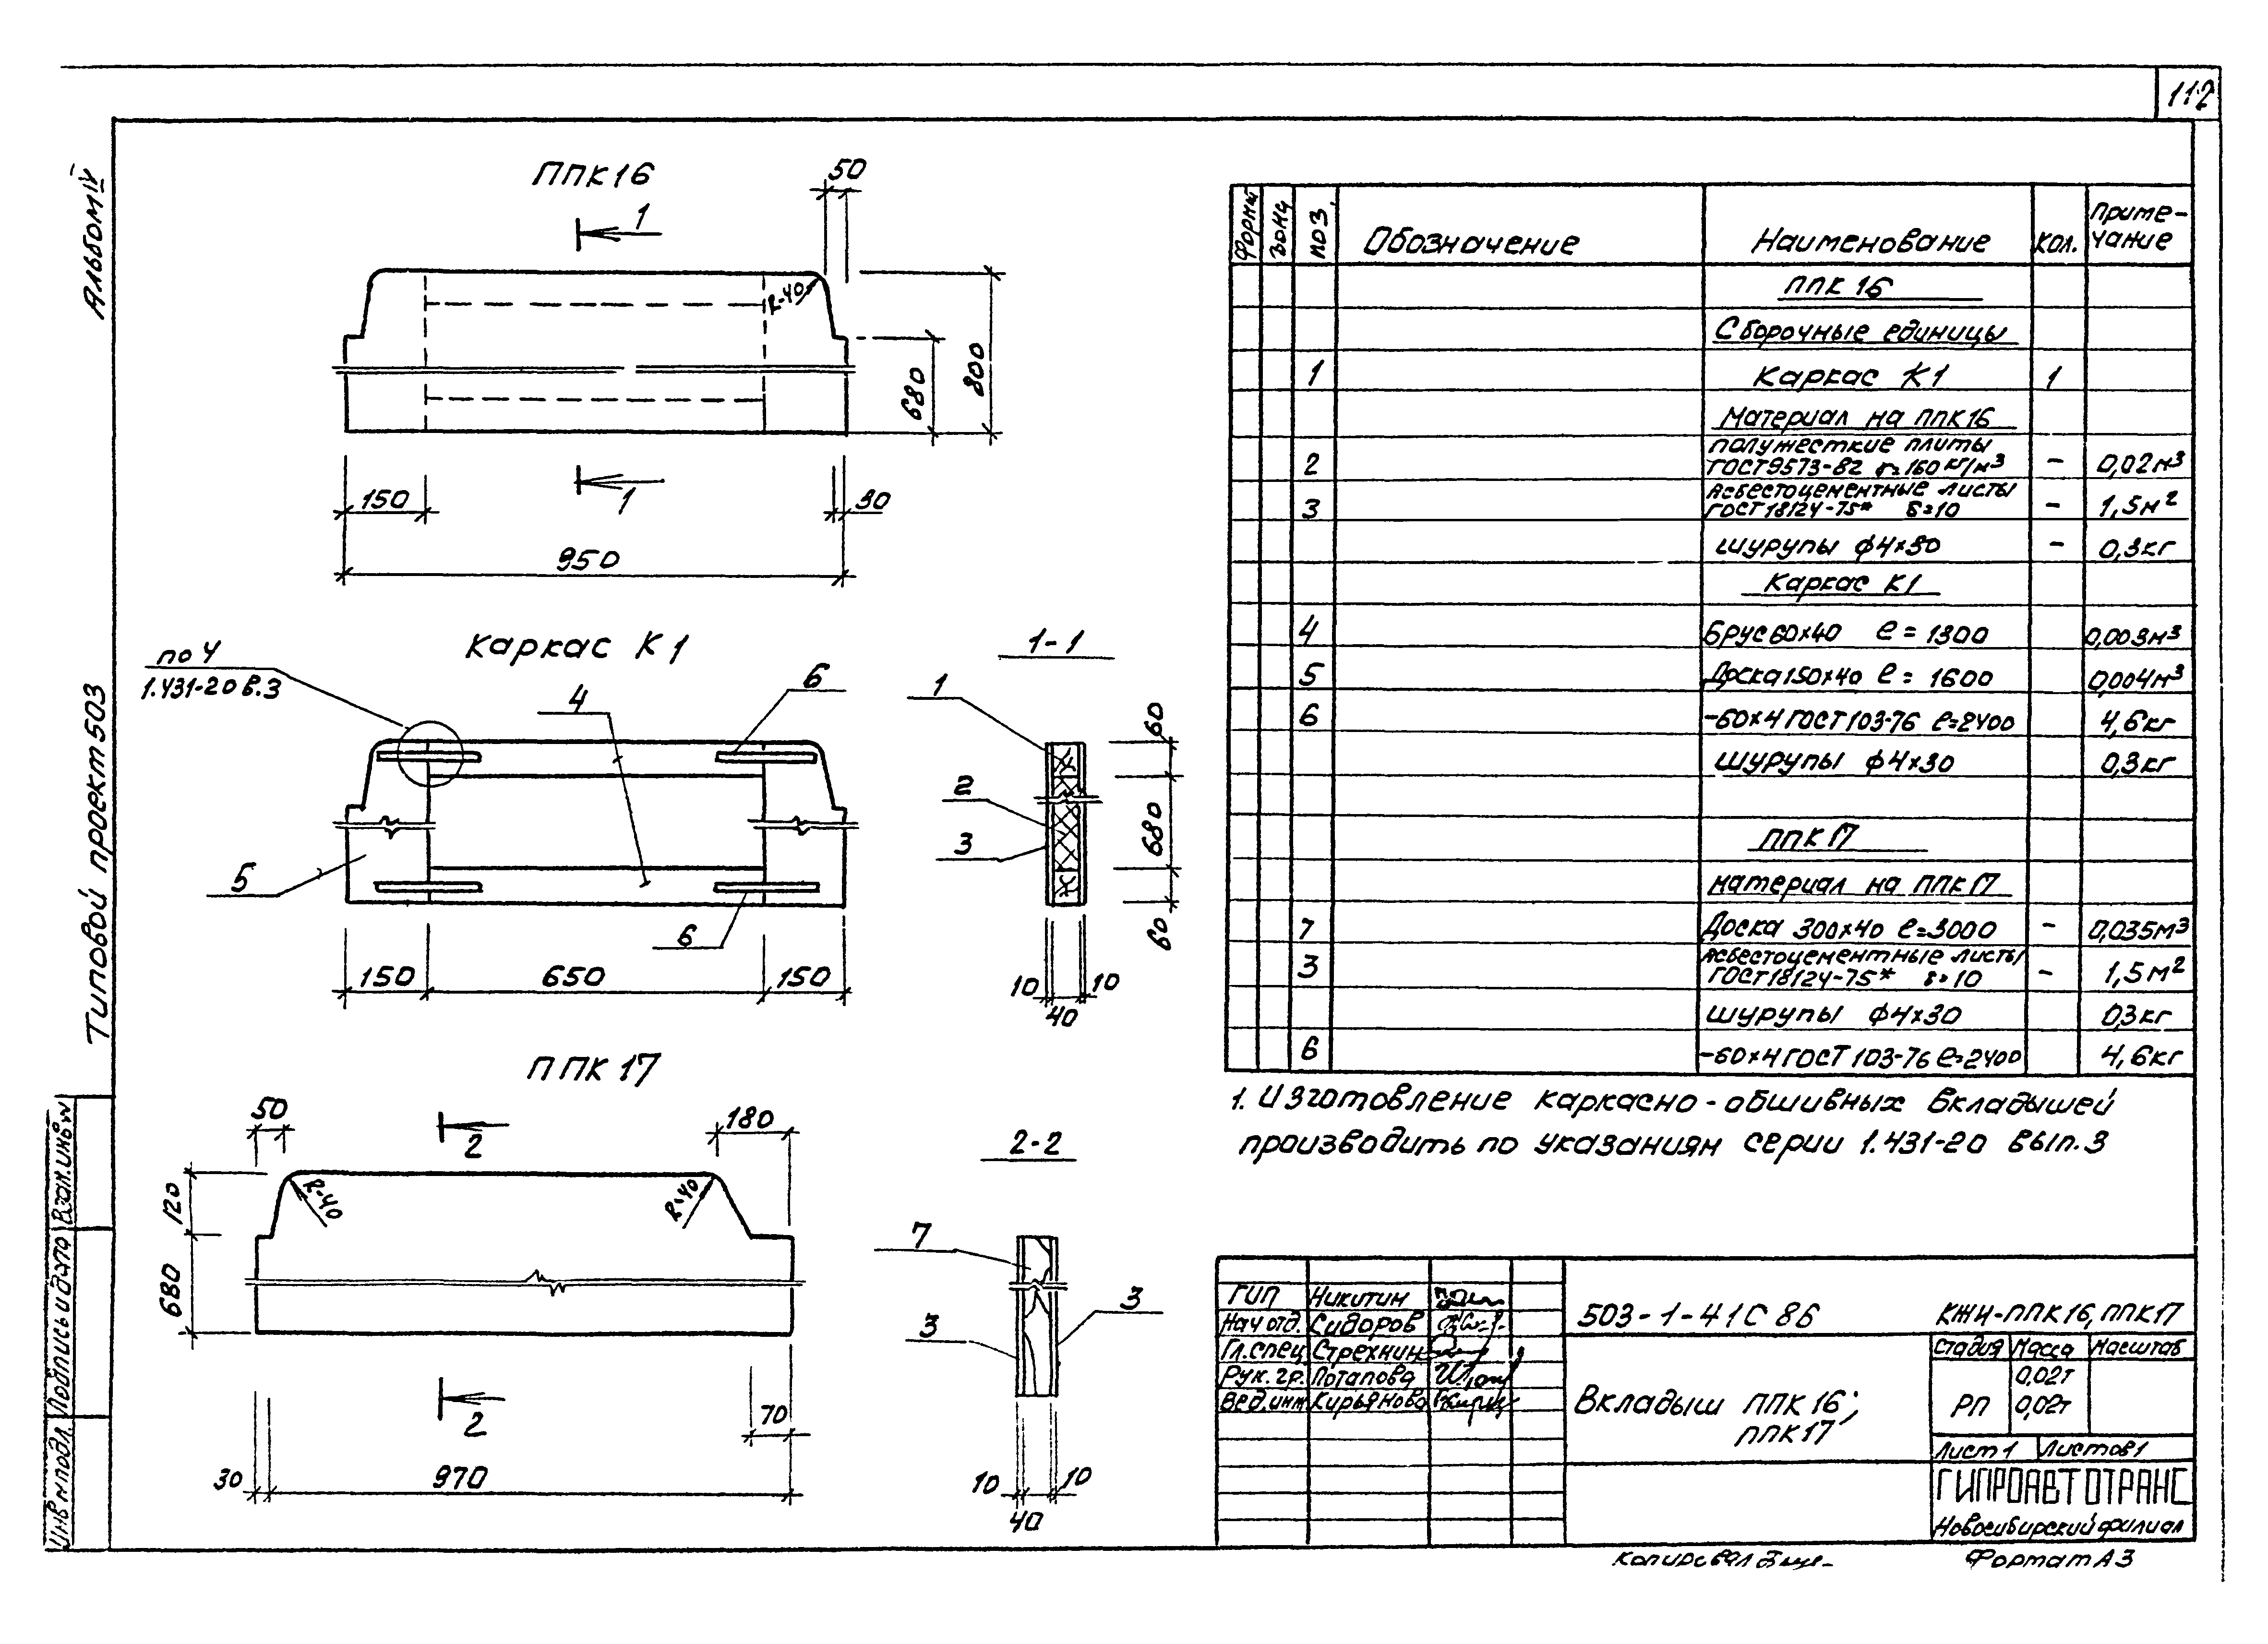 112
Альбом IV
Типовой проект 503
Взам.инв№
Подпись и дата
Инв № подл.
ППК16
50
1
R=40
680
800
1
150
30
950
Каркас К1
по 4
1.431-20 в.3
4
6
5
6
150
650
150
1-1
1
2
3
60
680
60
10
10
40
ППК17
50
2
180
R=40
R=40
120
680
2
70
30
970
2-2
7
3
3
10
10
40
Формат Зона Поз. Обозначение Наименование Кол. Приме-
чание
ППК 16
Сборочные единицы
1 Каркас К1 1
Материал на ППК16
полужесткие плиты
2 ГОСТ9573-82 γ=160 кг/м³ - 0,02м³
Асбестоцементные листы
3 ГОСТ18124-75* δ=10 - 1,5м²
шурупы ф4×30 - 0,3кг
Каркас К1
4 Брус60×40 ℓ=1300 0,003м³
5 Доска150×40 ℓ=1600 0,004м³
6 -60×4 ГОСТ103-76 ℓ=2400 4,6кг
шурупы ф4×30 0,3кг
ППК17
материал на ППК17
7 Доска 300×40 ℓ=3000 - 0,035м³
Асбестоцементные листы
3 ГОСТ18124-75* δ=10 - 1,5м²
шурупы ф4×30 0,3кг
6 -60×4 ГОСТ103-76 ℓ=2400 4,6кг
1. Изготовление каркасно-обшивных вкладышей
производить по указаниям серии 1.431-20 вып.3
ГИП Никитин
Нач отд. Сидоров
Гл.спец. Стрехнин
Рук.гр. Потапова
Вед.инж. Кирьянова
503-1-41С 86 КЖИ-ППК16, ППК17
Вкладыш ППК16;
ППК17
Стадия Масса Масштаб
0,02т
РП 0,02т
Лист 1 Листов 1
ГИПРОАВТОТРАНС
Новосибирский филиал
Копировал
Формат А3